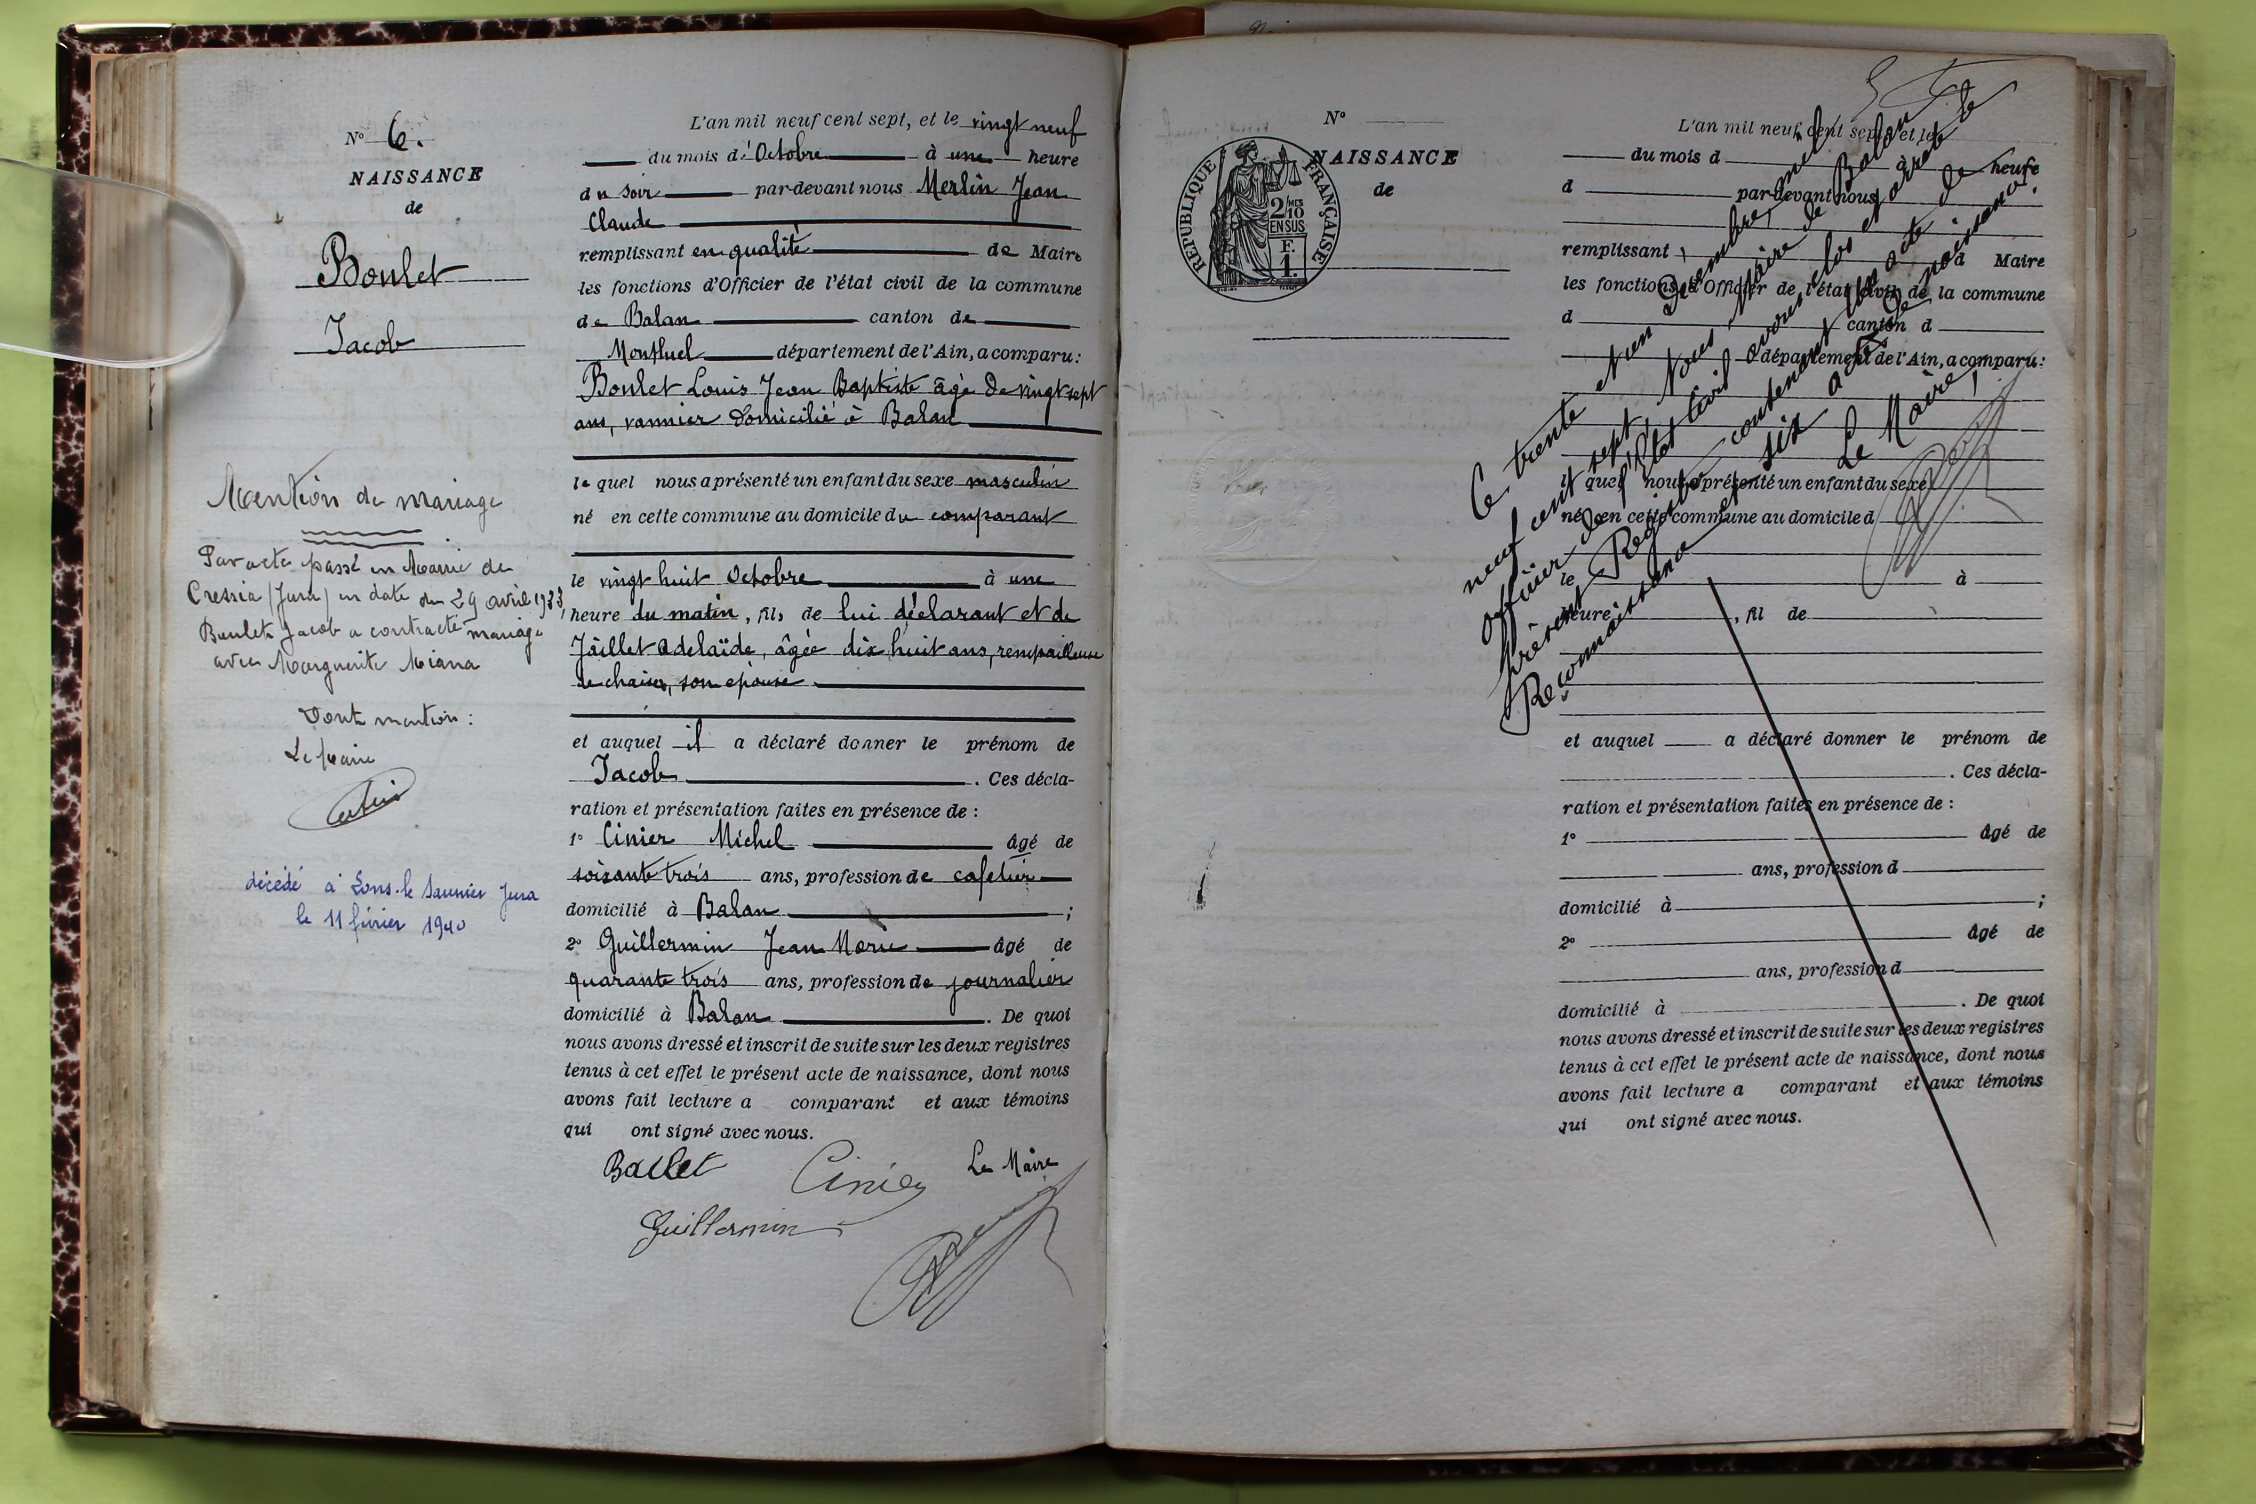 N° 6.
NAISSANCE
de
Boulet
Jacob
Mention de mariage
Par acte passé en Mairie de
Cressia (Jura) en date du 29 avril 1933,
Boulet Jacob a contracté mariage
avec Marguerite Miana
Dont mention :
Le Maire
décédé à Lons-le Saunier Jura
le 11 février 1940
L'an mil neuf cent sept, et le vingt neuf
du mois d'Octobre à une heure
du soir par-devant nous Merlin Jean
Claude
remplissant en qualité de Maire
les fonctions d'Officier de l'état civil de la commune
de Balan canton de
Montluel département de l'Ain, a comparu :
Boulet Louis Jean Baptiste âgé de vingt sept
ans, vannier domicilié à Balan
le quel nous a présenté un enfant du sexe masculin
né en cette commune au domicile du comparant
le vingt huit Octobre à une
heure du matin, fils de lui déclarant et de
Jâillet Adelaïde, âgée dix huit ans, rempailleuse
de chaises, son épouse
et auquel il a déclaré donner le prénom de
Jacob . Ces décla-
ration et présentation faites en présence de :
1° Cinier Michel âgé de
soixante trois ans, profession de cafetier
domicilié à Balan ;
2° Guillermin Jean Marie âgé de
quarante trois ans, profession de journalier
domicilié à Balan . De quoi
nous avons dressé et inscrit de suite sur les deux registres
tenus à cet effet le présent acte de naissance, dont nous
avons fait lecture a comparant et aux témoins
qui ont signé avec nous.
Boulet Cinier Le Maire
Guillermin
N°
NAISSANCE
de
RÉPUBLIQUE FRANÇAISE
2/10 MES
EN SUS
F.
1.
L'an mil neuf cent sept, et le
du mois d à heure
d par-devant nous
remplissant d Maire
les fonctions d'Officier de l'état civil de la commune
d canton d
département de l'Ain, a comparu :
l quel nous a présenté un enfant du sexe
né en cette commune au domicile d
le à
heure , fil de
et auquel a déclaré donner le prénom de
. Ces décla-
ration et présentation faites en présence de :
1° âgé de
ans, profession d
domicilié à ;
2° âgé de
ans, profession d
domicilié à . De quoi
nous avons dressé et inscrit de suite sur les deux registres
tenus à cet effet le présent acte de naissance, dont nous
avons fait lecture a comparant et aux témoins
qui ont signé avec nous.
Ce trente et un Décembre mil
neuf cent sept, Nous Maire de Balan
officier de l'État Civil avons clos et arrêté le
présent Registre contenant un acte de
Reconnaissance et six actes de naissance.
Le Maire,